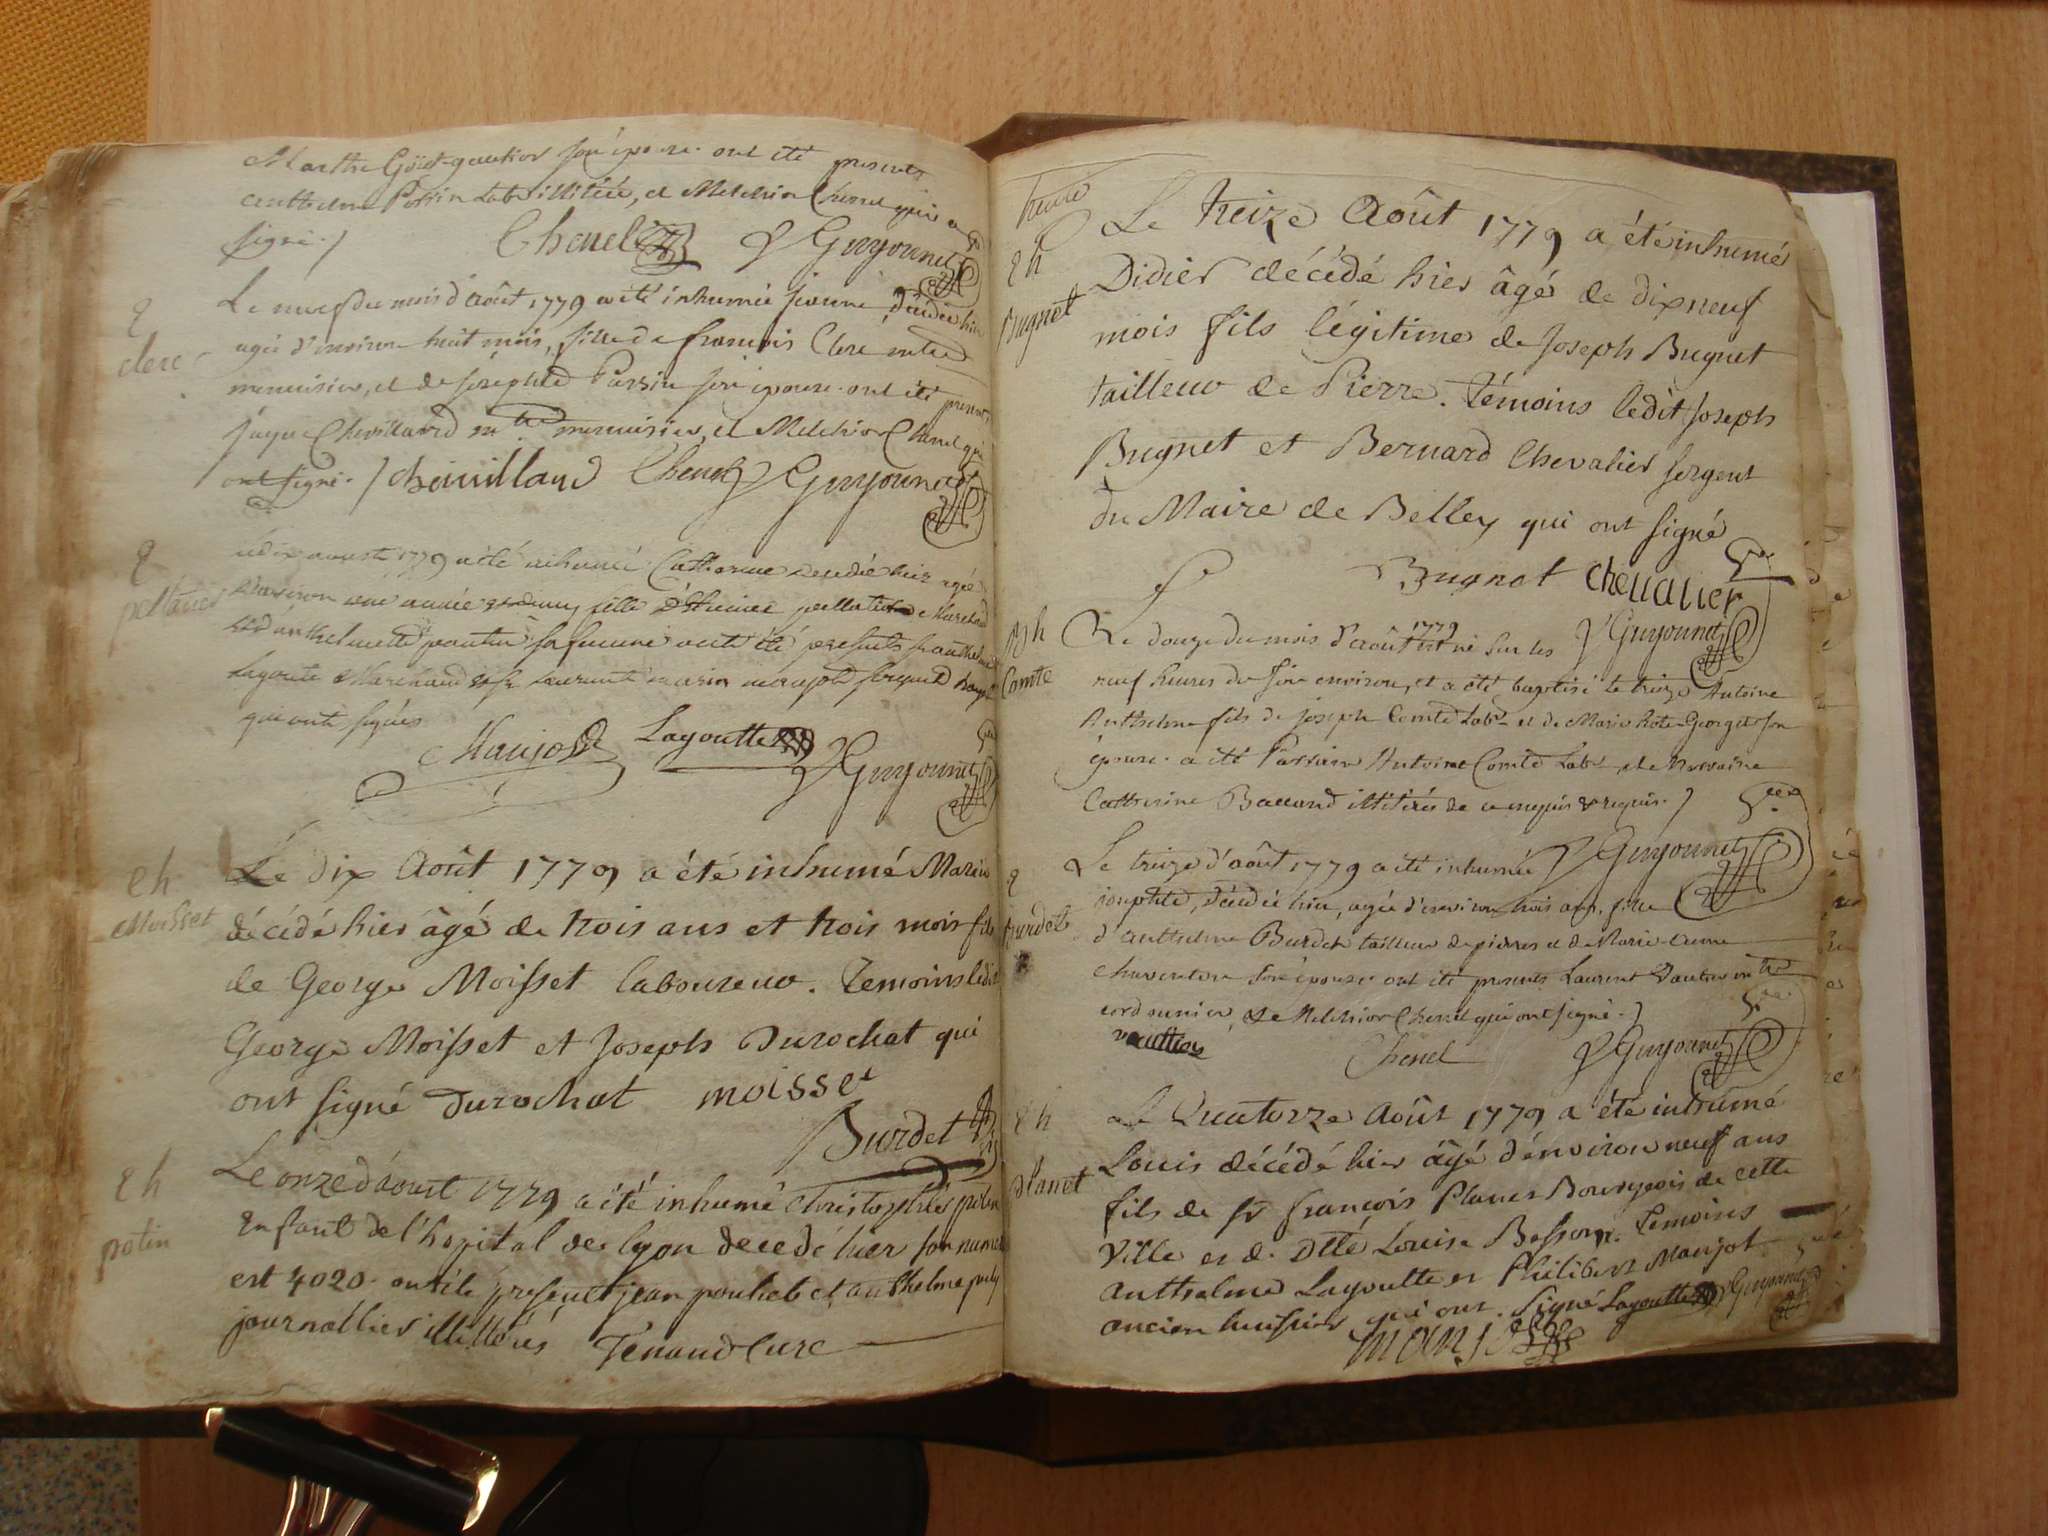 Marthe son épouse. ont été presents
anthelme Perrin Lab. illitéré, et Melchior Chenel qui a
signé./ Chenel Guyonnet
Le neuf du mois d'août 1779 a été inhumée jeanne, décédée hier
agée d'environ huit mois, fille de francois Clerc
clerc
menuisier, et de josephte Perrin son épouse. ont été presents
jaque Chevillard m.tre menuisier, et Melchior Chenel qui
ont signé. / chevillard Chenel Guyonnet
le dix aoust 1779 a été inhumée Catherine decedée hier agée
denviron une année fille d'Etienne Marchand
et d'anthelmette sa femme ont été presents sr anthelme
Lagoutte Marchand & sr marin maujot sergent
qui ont signés
Maujot Lagoutte Guyonnet
eh
Le dix Août 1779 a été inhumé Marin
Moisset
décédé hier âgé de trois ans et trois mois fils
de George Moisset laboureur. Temoins ledit
George Moisset et Joseph Durochat qui
ont signé Durochat moisset
Burdet
eh
Le onze d'aoust 1779 a été inhumé christophle potin
potin
Enfant de l'hopital de lyon decedé hier son numero
est 4020. ont été present jean et anthelme
journallier illitterés Tenand Curé
eh
Bugnet
Le treize Août 1779 a été inhumé
Didier décédé hier âgé de dix neuf
mois fils légitime de Joseph Bugnet
tailleur de Pierre. Témoins ledit Joseph
Bugnet et Bernard Chevalier sergent
du Maire de Belley qui ont signé
Bugnet chevalier
Comte
Le douze du mois d'août 1779 est né sur les Guyonnet
neuf heures du soir environ, et a été baptisé le treize Antoine
Anthelme fils de joseph Comte Lab.r et de Marie George son
épouse. a été Parrain Antoine Comte Lab.r et Marraine
Catherine illitérés de ce enquis & requis./
Le treize d'août 1779 a été inhumée Guyonnet
josephte, décédée hier, agée d'environ trois ans, fille
burdet
d'anthelme Burdet tailleur de pierres et de Marie
son épouse. ont été presents Laurent Vautier m.tre
cordonnier, et Melchior Chenel qui ont signé./
vauttier Chenel Guyonnet
eh
Le Quatorze Août 1779 a été inhumé
Louis décédé hier âgé d'environ neuf ans
planet
fils de sr françois Planet Bourgeois de cette
Ville et de Dlle Louise Besson. Temoins
Anthelme Lagoutte et Philibert Maujot
ancien huissier qui ont signé Lagoutte Guyonnet
maujot